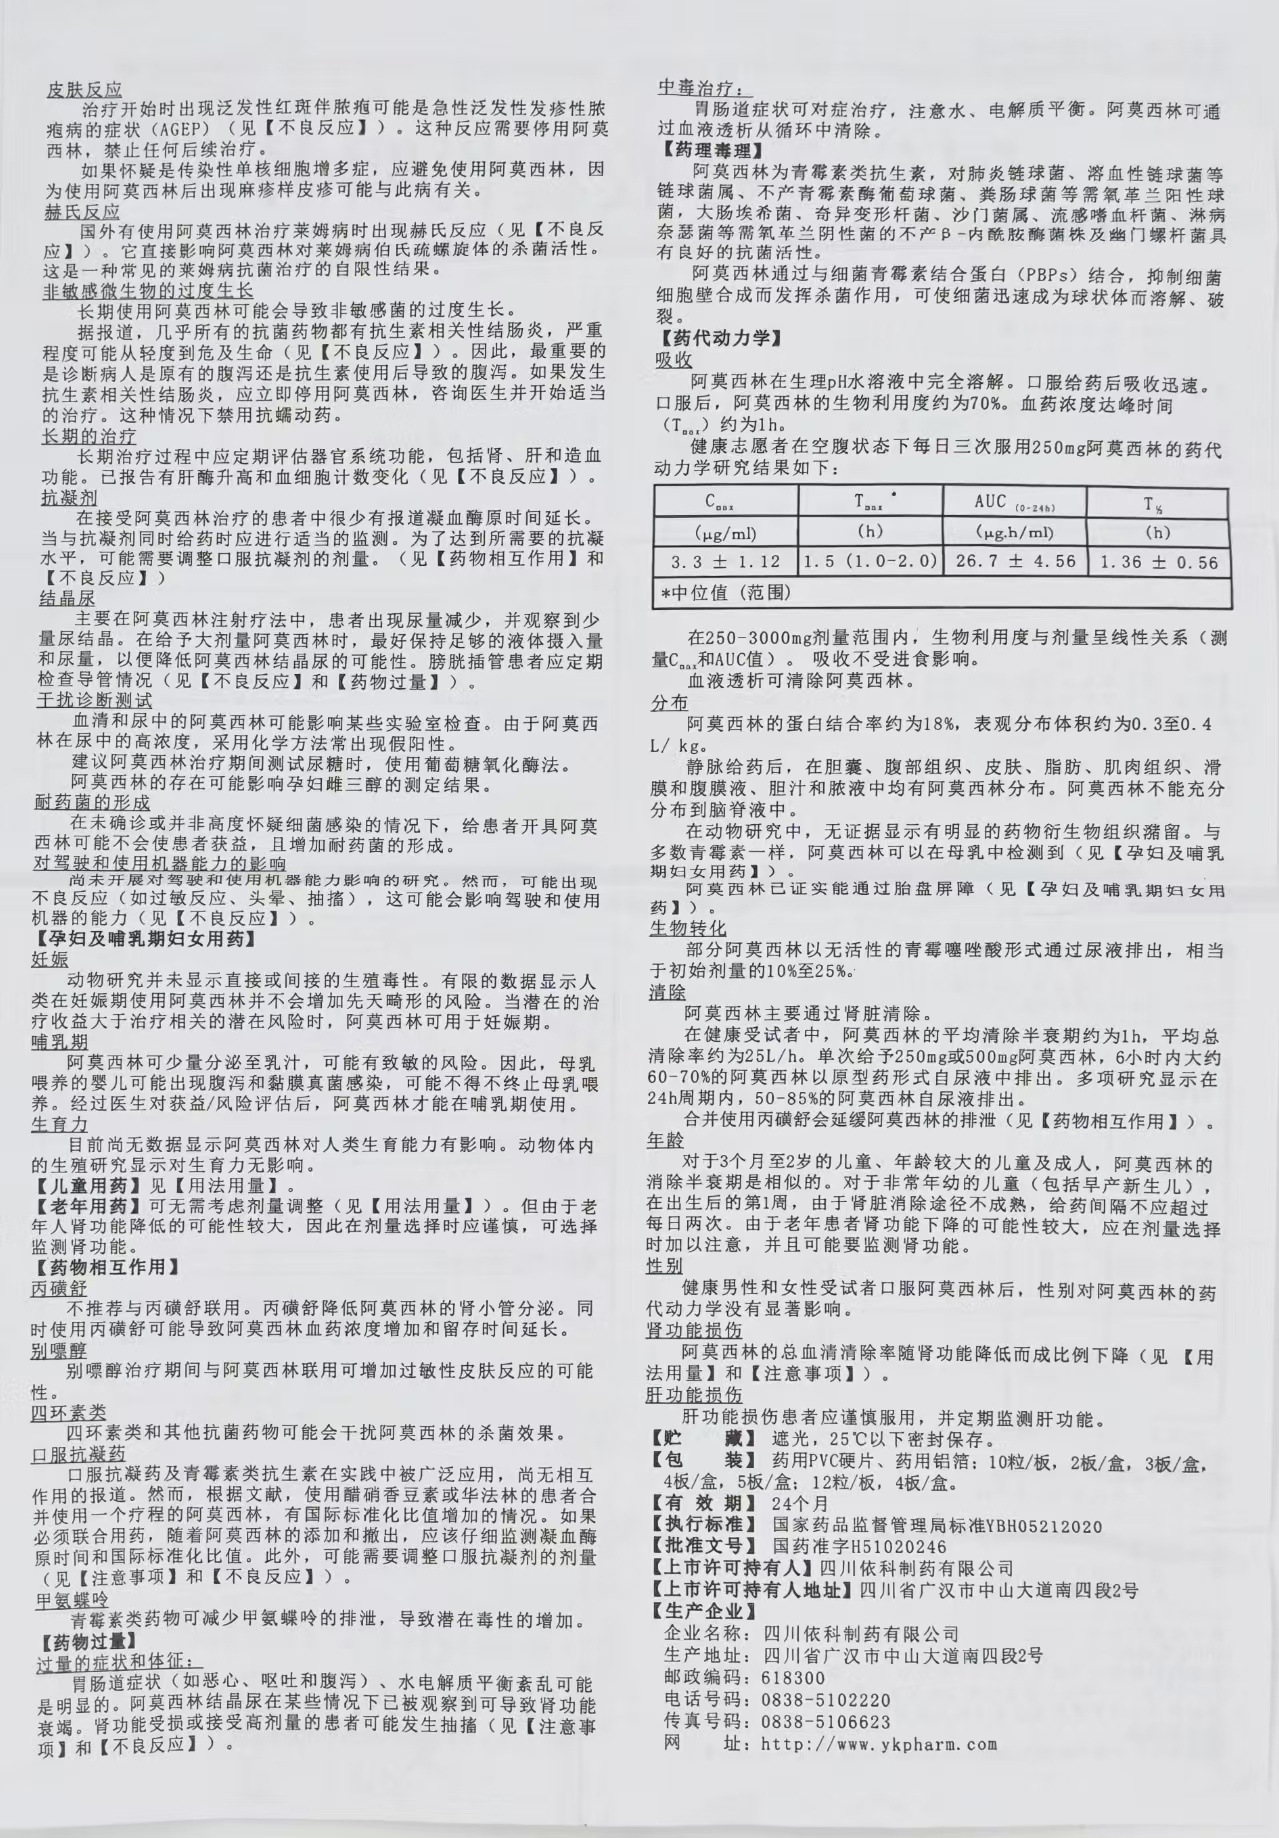 皮肤反应
治疗开始时出现泛发性红斑伴脓疱可能是急性泛发性发疹性脓
疱病的症状（AGEP）（见【不良反应】）。这种反应需要停用阿莫
西林，禁止任何后续治疗。
如果怀疑是传染性单核细胞增多症，应避免使用阿莫西林，因
为使用阿莫西林后出现麻疹样皮疹可能与此病有关。
赫氏反应
国外有使用阿莫西林治疗莱姆病时出现赫氏反应（见【不良反
应】）。它直接影响阿莫西林对莱姆病伯氏疏螺旋体的杀菌活性。
这是一种常见的莱姆病抗菌治疗的自限性结果。
非敏感微生物的过度生长
长期使用阿莫西林可能会导致非敏感菌的过度生长。
据报道，几乎所有的抗菌药物都有抗生素相关性结肠炎，严重
程度可能从轻度到危及生命（见【不良反应】）。因此，最重要的
是诊断病人是原有的腹泻还是抗生素使用后导致的腹泻。如果发生
抗生素相关性结肠炎，应立即停用阿莫西林，咨询医生并开始适当
的治疗。这种情况下禁用抗蠕动药。
长期的治疗
长期治疗过程中应定期评估器官系统功能，包括肾、肝和造血
功能。已报告有肝酶升高和血细胞计数变化（见【不良反应】）。
抗凝剂
在接受阿莫西林治疗的患者中很少有报道凝血酶原时间延长。
当与抗凝剂同时给药时应进行适当的监测。为了达到所需要的抗凝
水平，可能需要调整口服抗凝剂的剂量。（见【药物相互作用】和
【不良反应】）
结晶尿
主要在阿莫西林注射疗法中，患者出现尿量减少，并观察到少
量尿结晶。在给予大剂量阿莫西林时，最好保持足够的液体摄入量
和尿量，以便降低阿莫西林结晶尿的可能性。膀胱插管患者应定期
检查导管情况（见【不良反应】和【药物过量】）。
干扰诊断测试
血清和尿中的阿莫西林可能影响某些实验室检查。由于阿莫西
林在尿中的高浓度，采用化学方法常出现假阳性。
建议阿莫西林治疗期间测试尿糖时，使用葡萄糖氧化酶法。
阿莫西林的存在可能影响孕妇雌三醇的测定结果。
耐药菌的形成
在未确诊或并非高度怀疑细菌感染的情况下，给患者开具阿莫
西林可能不会使患者获益，且增加耐药菌的形成。
对驾驶和使用机器能力的影响
尚未开展对驾驶和使用机器能力影响的研究。然而，可能出现
不良反应（如过敏反应、头晕、抽搐），这可能会影响驾驶和使用
机器的能力（见【不良反应】）。
【孕妇及哺乳期妇女用药】
妊娠
动物研究并未显示直接或间接的生殖毒性。有限的数据显示人
类在妊娠期使用阿莫西林并不会增加先天畸形的风险。当潜在的治
疗收益大于治疗相关的潜在风险时，阿莫西林可用于妊娠期。
哺乳期
阿莫西林可少量分泌至乳汁，可能有致敏的风险。因此，母乳
喂养的婴儿可能出现腹泻和黏膜真菌感染，可能不得不终止母乳喂
养。经过医生对获益/风险评估后，阿莫西林才能在哺乳期使用。
生育力
目前尚无数据显示阿莫西林对人类生育能力有影响。动物体内
的生殖研究显示对生育力无影响。
【儿童用药】见【用法用量】。
【老年用药】可无需考虑剂量调整（见【用法用量】）。但由于老
年人肾功能降低的可能性较大，因此在剂量选择时应谨慎，可选择
监测肾功能。
【药物相互作用】
丙磺舒
不推荐与丙磺舒联用。丙磺舒降低阿莫西林的肾小管分泌。同
时使用丙磺舒可能导致阿莫西林血药浓度增加和留存时间延长。
别嘌醇
别嘌醇治疗期间与阿莫西林联用可增加过敏性皮肤反应的可能
性。
四环素类
四环素类和其他抗菌药物可能会干扰阿莫西林的杀菌效果。
口服抗凝药
口服抗凝药及青霉素类抗生素在实践中被广泛应用，尚无相互
作用的报道。然而，根据文献，使用醋硝香豆素或华法林的患者合
并使用一个疗程的阿莫西林，有国际标准化比值增加的情况。如果
必须联合用药，随着阿莫西林的添加和撤出，应该仔细监测凝血酶
原时间和国际标准化比值。此外，可能需要调整口服抗凝剂的剂量
（见【注意事项】和【不良反应】）。
甲氨蝶呤
青霉素类药物可减少甲氨蝶呤的排泄，导致潜在毒性的增加。
【药物过量】
过量的症状和体征：
胃肠道症状（如恶心、呕吐和腹泻）、水电解质平衡紊乱可能
是明显的。阿莫西林结晶尿在某些情况下已被观察到可导致肾功能
衰竭。肾功能受损或接受高剂量的患者可能发生抽搐（见【注意事
项】和【不良反应】）。
中毒治疗：
胃肠道症状可对症治疗，注意水、电解质平衡。阿莫西林可通
过血液透析从循环中清除。
【药理毒理】
阿莫西林为青霉素类抗生素，对肺炎链球菌、溶血性链球菌等
链球菌属、不产青霉素酶葡萄球菌、粪肠球菌等需氧革兰阳性球
菌，大肠埃希菌、奇异变形杆菌、沙门菌属、流感嗜血杆菌、淋病
奈瑟菌等需氧革兰阴性菌的不产β-内酰胺酶菌株及幽门螺杆菌具
有良好的抗菌活性。
阿莫西林通过与细菌青霉素结合蛋白（PBPs）结合，抑制细菌
细胞壁合成而发挥杀菌作用，可使细菌迅速成为球状体而溶解、破
裂。
【药代动力学】
吸收
阿莫西林在生理pH水溶液中完全溶解。口服给药后吸收迅速。
口服后，阿莫西林的生物利用度约为70%。血药浓度达峰时间
（Tmax）约为1h。
健康志愿者在空腹状态下每日三次服用250mg阿莫西林的药代
动力学研究结果如下：
Cmax Tmax* AUC (0-24h) T½
(μg/ml) (h) (μg.h/ml) (h)
3.3 ± 1.12 1.5 (1.0-2.0) 26.7 ± 4.56 1.36 ± 0.56
*中位值 (范围)
在250-3000mg剂量范围内，生物利用度与剂量呈线性关系（测
量Cmax和AUC值）。 吸收不受进食影响。
血液透析可清除阿莫西林。
分布
阿莫西林的蛋白结合率约为18%，表观分布体积约为0.3至0.4
L/ kg。
静脉给药后，在胆囊、腹部组织、皮肤、脂肪、肌肉组织、滑
膜和腹膜液、胆汁和脓液中均有阿莫西林分布。阿莫西林不能充分
分布到脑脊液中。
在动物研究中，无证据显示有明显的药物衍生物组织潴留。与
多数青霉素一样，阿莫西林可以在母乳中检测到（见【孕妇及哺乳
期妇女用药】）。
阿莫西林已证实能通过胎盘屏障（见【孕妇及哺乳期妇女用
药】）。
生物转化
部分阿莫西林以无活性的青霉噻唑酸形式通过尿液排出，相当
于初始剂量的10%至25%。
清除
阿莫西林主要通过肾脏清除。
在健康受试者中，阿莫西林的平均清除半衰期约为1h，平均总
清除率约为25L/h。单次给予250mg或500mg阿莫西林，6小时内大约
60-70%的阿莫西林以原型药形式自尿液中排出。多项研究显示在
24h周期内，50-85%的阿莫西林自尿液排出。
合并使用丙磺舒会延缓阿莫西林的排泄（见【药物相互作用】）。
年龄
对于3个月至2岁的儿童、年龄较大的儿童及成人，阿莫西林的
消除半衰期是相似的。对于非常年幼的儿童（包括早产新生儿），
在出生后的第1周，由于肾脏消除途径不成熟，给药间隔不应超过
每日两次。由于老年患者肾功能下降的可能性较大，应在剂量选择
时加以注意，并且可能要监测肾功能。
性别
健康男性和女性受试者口服阿莫西林后，性别对阿莫西林的药
代动力学没有显著影响。
肾功能损伤
阿莫西林的总血清清除率随肾功能降低而成比例下降（见 【用
法用量】和【注意事项】）。
肝功能损伤
肝功能损伤患者应谨慎服用，并定期监测肝功能。
【贮 藏】 遮光，25℃以下密封保存。
【包 装】 药用PVC硬片、药用铝箔；10粒/板，2板/盒，3板/盒，
4板/盒，5板/盒；12粒/板，4板/盒。
【有 效 期】 24个月
【执行标准】 国家药品监督管理局标准YBH05212020
【批准文号】 国药准字H51020246
【上市许可持有人】四川依科制药有限公司
【上市许可持有人地址】四川省广汉市中山大道南四段2号
【生产企业】
企业名称：四川依科制药有限公司
生产地址：四川省广汉市中山大道南四段2号
邮政编码：618300
电话号码：0838-5102220
传真号码：0838-5106623
网 址：http://www.ykpharm.com